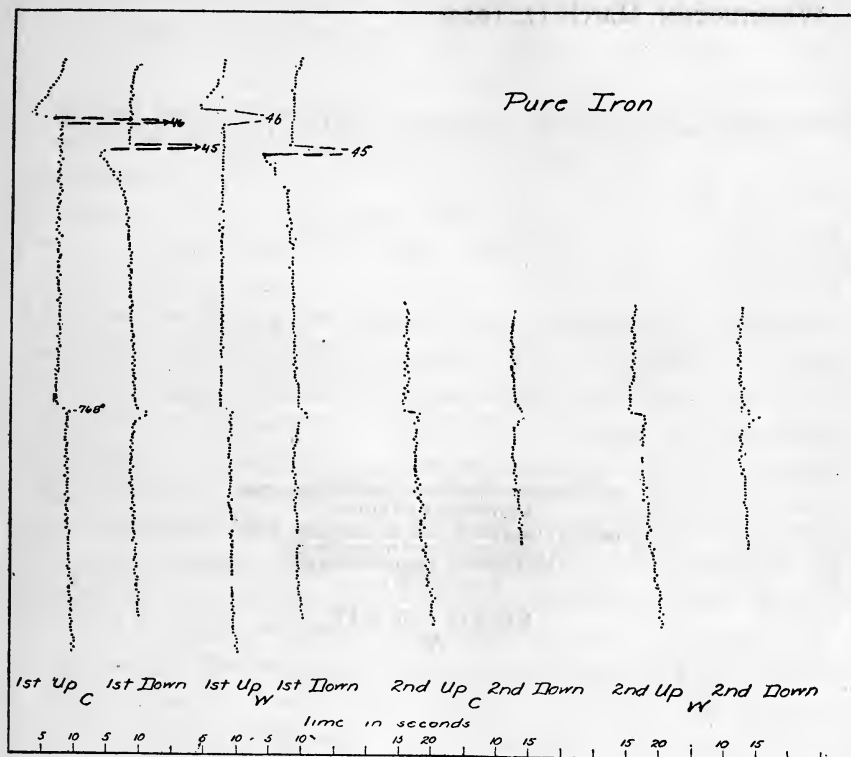 Pure Iron
46
46
45
45
768°
1st Up C 1st Down 1st Up W 1st Down 2nd Up C 2nd Down 2nd Up W 2nd Down
Time in seconds
5 10 5 10 6 10 5 10 15 20 10 15 15 20 10 15